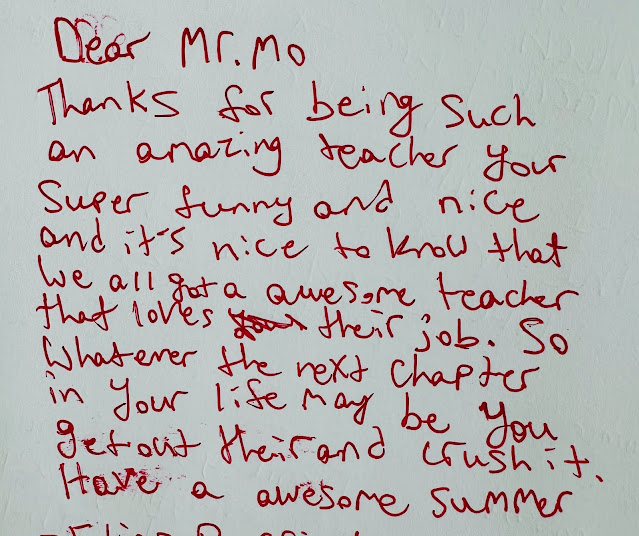 Dear Mr. Mo
Thanks for being such
an amazing teacher your
super funny and nice
and it's nice to know that
we all got a awesome teacher
that loves their job. So
whatever the next chapter
in your life may be you
get out their and crush it.
Have a awesome summer